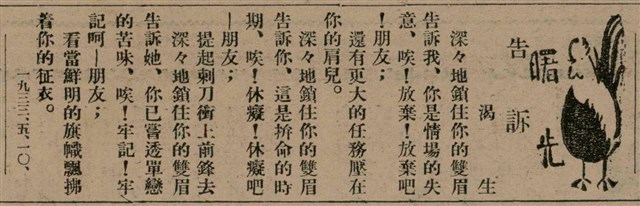 曙光
告訴
渴生
深々地鎖住你的雙眉
告訴我、你是情場的失
意、唉!放棄!放棄吧
!朋友;
還有更大的任務壓在
你的肩兒。
深々地鎖住你的雙眉
告訴你、這是拚命的時
期、唉!休癡!休癡吧
—朋友;
提起剌刀衝上前鋒去
深々地鎖住你的雙眉
告訴她、你已嘗透單戀
的苦味、唉!牢記!牢
記呵—朋友;
看當鮮明的旗幟飄拂
着你的征衣。
一九三三、五、一〇、